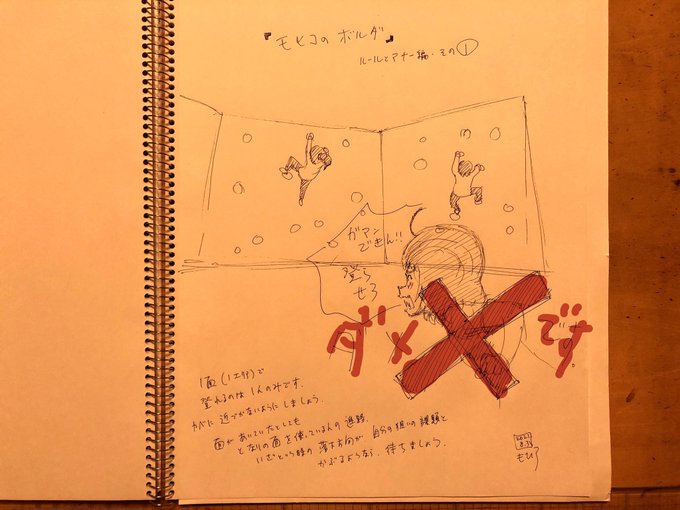 『モヒコの ボルダ』
ルールとマナー編・その①
ガマン
できん!!
登ら
せろ
ダメ
です
1面(1エリア)で
登れるのは1人のみです。
かべに近づかないようにしましょう。
面があいていたとしても
となりの面を使っている人の進路、
いざという時の落下方向が 自分の狙いの課題と
かぶるようなら、待ちましょう。
2021
8.31